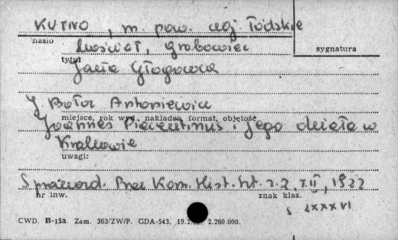 KUTNO, m. pow. woj. łódzkie
hasło
kościół, grobowiec
sygnatura
tytuł
Jana Głogowca
J. Bołoz Antoniewicz
miejsce, rok wyd., nakładca, format, objętość
Joannes Placentinus i jego dzieła w
Krakowie
uwagi:
Sprawozd. Prac Kom. Hist. Szt. z. 2, t. II, 1922
nr inw.
znak klas.
s. LXXXVI
CWD. H-15a. Zam. 363/ZW/P. GDA-543. 2.260.000.